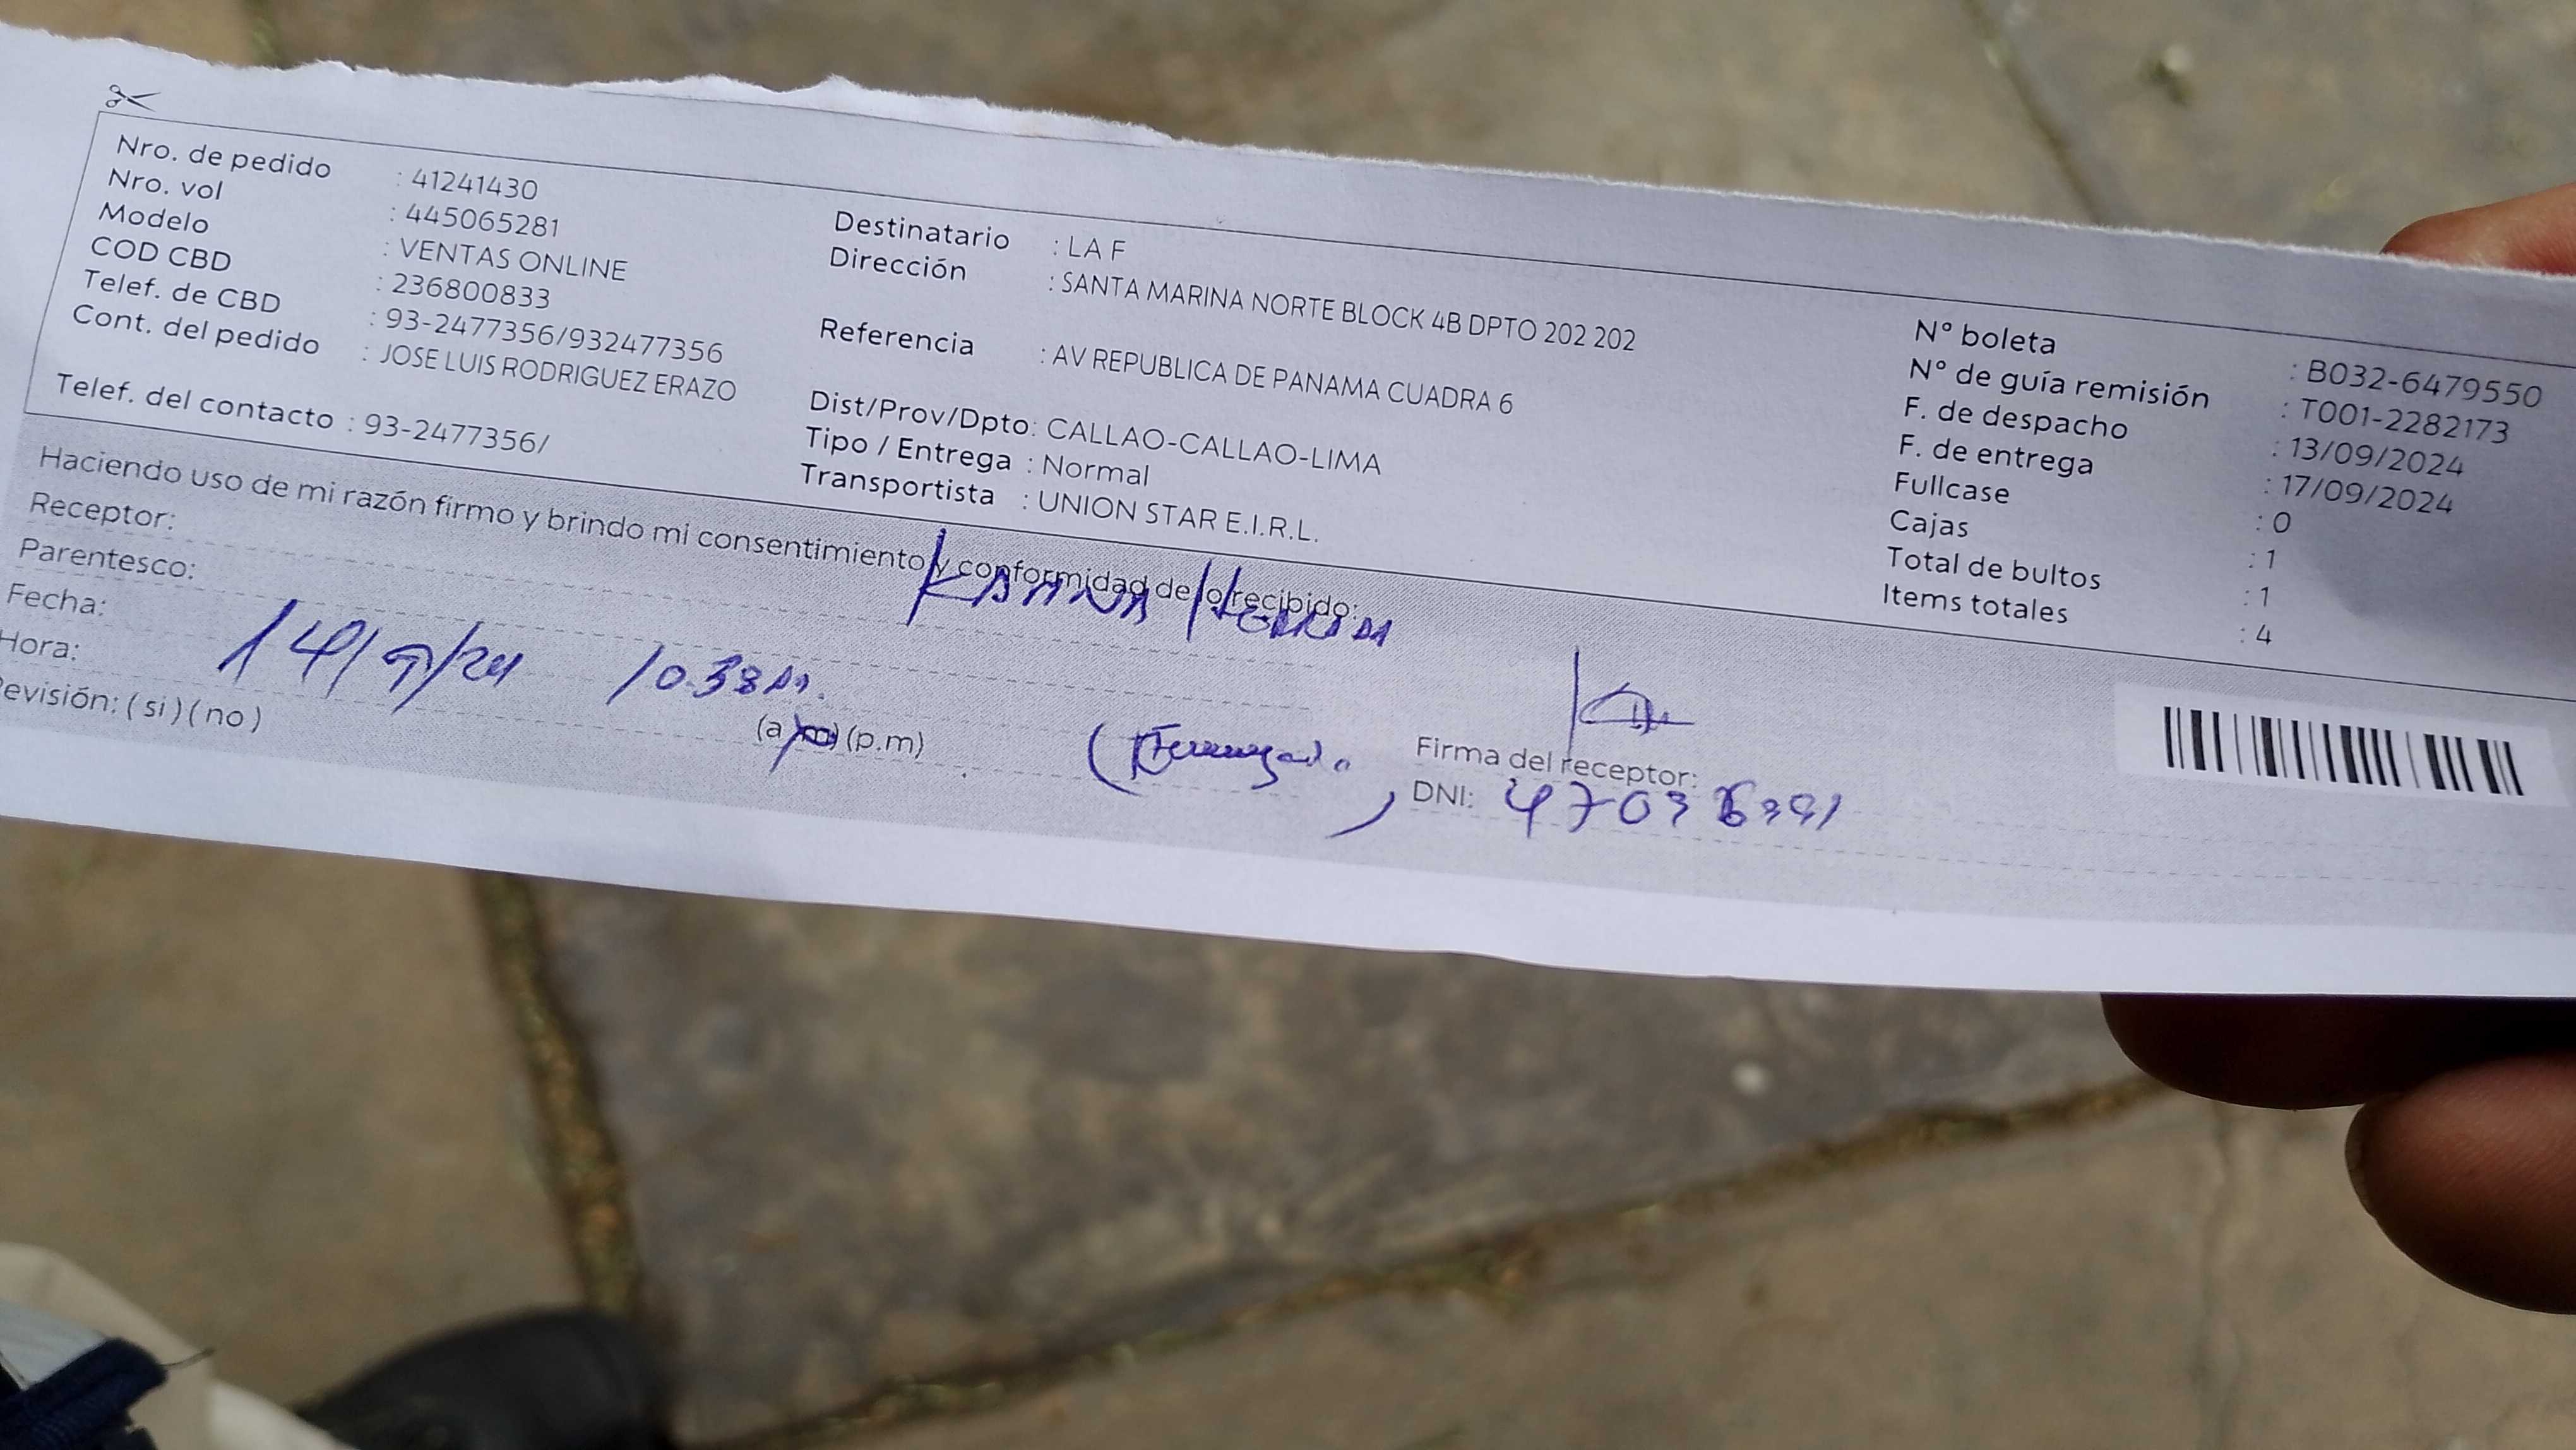 Nro. de pedido : 41241430
Nro. vol : 445065281
Modelo : VENTAS ONLINE
COD CBD : 236800833
Telef. de CBD : 93-2477356/932477356
Cont. del pedido : JOSE LUIS RODRIGUEZ ERAZO
Telef. del contacto : 93-2477356/
Destinatario : LA F
Dirección : SANTA MARINA NORTE BLOCK 4B DPTO 202 202
Referencia : AV REPUBLICA DE PANAMA CUADRA 6
Dist/Prov/Dpto: CALLAO-CALLAO-LIMA
Tipo / Entrega : Normal
Transportista : UNION STAR E.I.R.L.
N° boleta : B032-6479550
N° de guía remisión : T001-2282173
F. de despacho : 13/09/2024
F. de entrega : 17/09/2024
Fullcase : 0
Cajas : 1
Total de bultos : 1
Items totales : 4
Haciendo uso de mi razón firmo y brindo mi consentimiento y conformidad de lo recibido:
Receptor:
Parentesco:
Fecha: 14/9/24 10:38
Hora: (a.m) (p.m)
Revisión: ( si ) ( no )
Firma del receptor:
DNI: